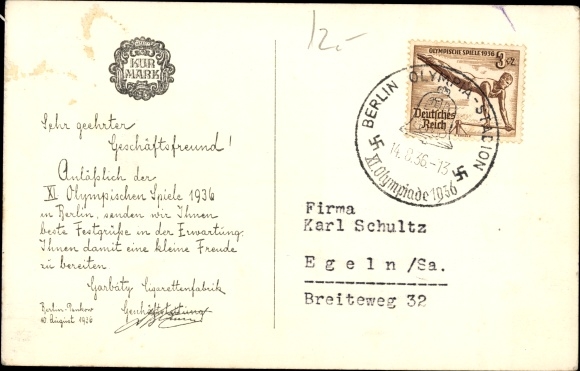 KUR
MARK
12.-
OLYMPISCHE SPIELE 1936
3
Deutsches
Reich
BERLIN OLYMPIA-STADION
14.8.36.-13
XI. Olympiade 1936
Sehr geehrter
Geschäftsfreund!
Anläßlich der
XI. Olympischen Spiele 1936
in Berlin, senden wir Ihnen
beste Festgrüße in der Erwartung,
Ihnen damit eine kleine Freude
zu bereiten.
Garbáty Cigarettenfabrik
Berlin-Pankow
10. August 1936
Geschäftsleitung
Firma
Karl Schultz
Egeln/Sa.
Breiteweg 32